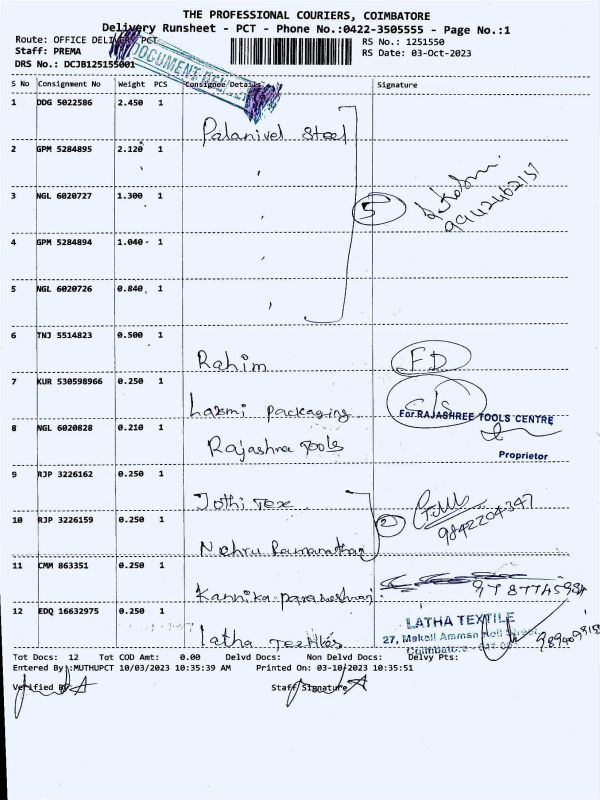 THE PROFESSIONAL COURIERS, COIMBATORE
Delivery Runsheet - PCT - Phone No.:0422-3505555 - Page No.:1
Route: OFFICE DELIVERY PCT
RS No.: 1251550
Staff: PREMA
RS Date: 03-Oct-2023
DRS No.: DCJB125155001
DOCUMENT
S No Consignment No Weight PCS Consignee Details Signature
1 DDG 5022586 2.450 1
Palanivel Steel
2 GPM 5284895 2.120 1
3 NGL 6020727 1.300 1
5
9942462137
4 GPM 5284894 1.040 1
5 NGL 6020726 0.840 1
6 TNJ 5514823 0.500 1
Rahim FD
7 KUR 530598966 0.250 1
Laxmi packaging C/S
For RAJASHREE TOOLS CENTRE
8 NGL 6020828 0.210 1
Rajashree Tools
Proprietor
9 RJP 3226162 0.250 1
Jothi Tex
2
9842204347
10 RJP 3226159 0.250 1
Nehru Ramanathan
11 CMM 863351 0.250 1
Kannika parameshwari
12 EDQ 16632975 0.250 1
LATHA TEXTILE
Latha Textiles
27, Makali Amman Koil Street
Coimbatore
Tot Docs: 12 Tot COD Amt: 0.00 Delvd Docs: Non Delvd Docs: Delvy Pts:
Entered By :MUTHUPCT 10/03/2023 10:35:39 AM Printed On: 03-10-2023 10:35:51
Verified By Staff Signature